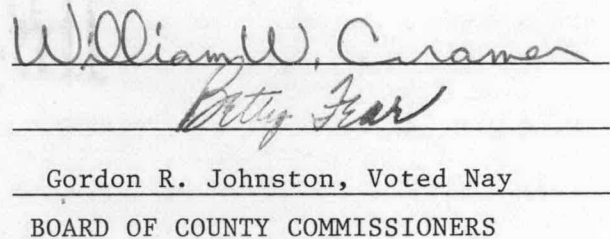 William W. Cramer
Betty Fear
Gordon R. Johnston, Voted Nay
BOARD OF COUNTY COMMISSIONERS